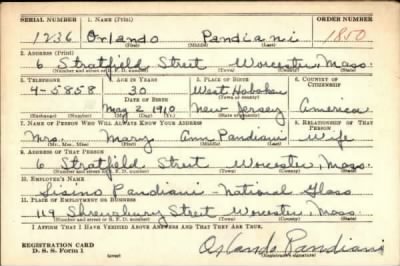 SERIAL NUMBER 1. NAME (Print) ORDER NUMBER
1236 Orlando Pandiani 1850
(First) (Middle) (Last)
2. ADDRESS (Print)
6 Stratfield Street Worcester, Mass.
(Number and street or R. F. D. number) (Town) (County) (State)
3. TELEPHONE 4. AGE IN YEARS 5. PLACE OF BIRTH 6. COUNTRY OF CITIZENSHIP
4-5858 30 West Hoboken
DATE OF BIRTH (Town or county)
May 2 1910 New Jersey America
(Exchange) (Number) (Mo.) (Day) (Yr.) (State or country)
7. NAME OF PERSON WHO WILL ALWAYS KNOW YOUR ADDRESS 8. RELATIONSHIP OF THAT PERSON
Mrs. Mary Ann Pandiani Wife
(Mr., Mrs., Miss) (First) (Middle) (Last)
9. ADDRESS OF THAT PERSON
6 Stratfield Street Worcester, Mass.
(Number and street or R. F. D. number) (Town) (County) (State)
10. EMPLOYER'S NAME
Sisino Pandiani National Glass
11. PLACE OF EMPLOYMENT OR BUSINESS
119 Shrewsbury Street Worcester Mass
(Number and street or R. F. D. number) (Town) (County) (State)
I AFFIRM THAT I HAVE VERIFIED ABOVE ANSWERS AND THAT THEY ARE TRUE.
REGISTRATION CARD
D. S. S. Form 1 Orlando Pandiani
(over) (Registrant's signature)